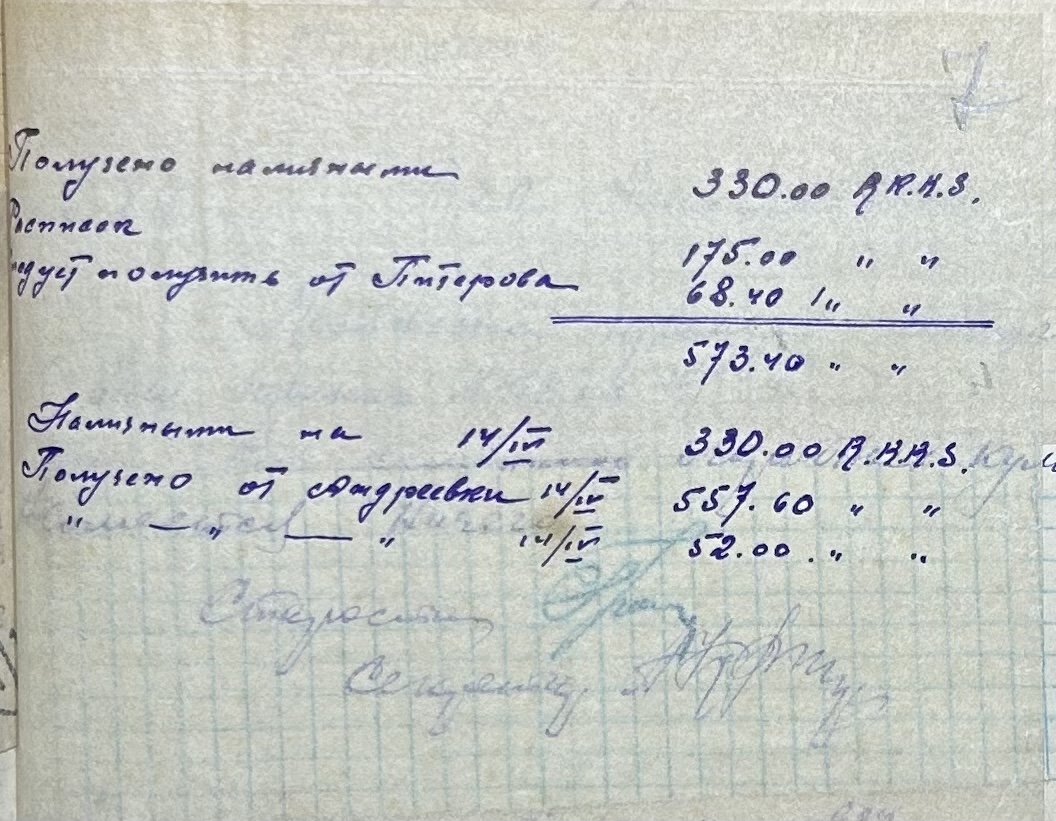 Получено наличными 330.00 R.K.K.S.
Расписок 175.00 " "
будут получить от Питерова 68.40 " "
573.40 " "
Наличными на 14/IV 330.00 R.K.K.S.
Получено от Андреевки 14/IV 557.60 " "
" — " — " 14/IV 52.00 " "
Староста
Секретарь